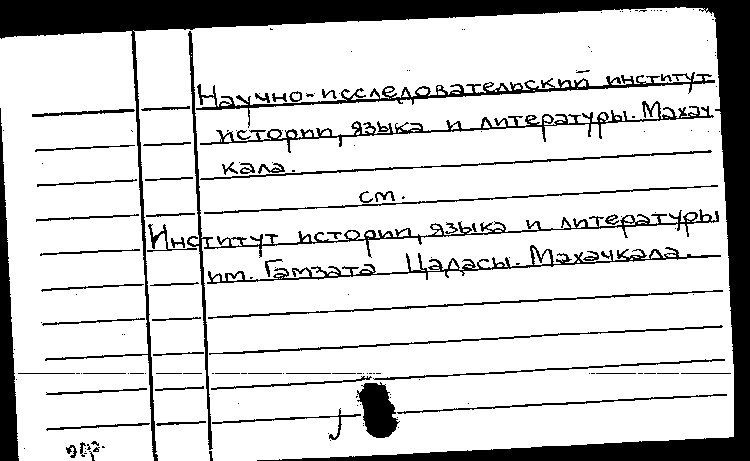 Научно-исследовательский институт
истории, языка и литературы. Махач-
кала.
см.
Институт истории, языка и литературы
им. Гамзата Цадасы. Махачкала.